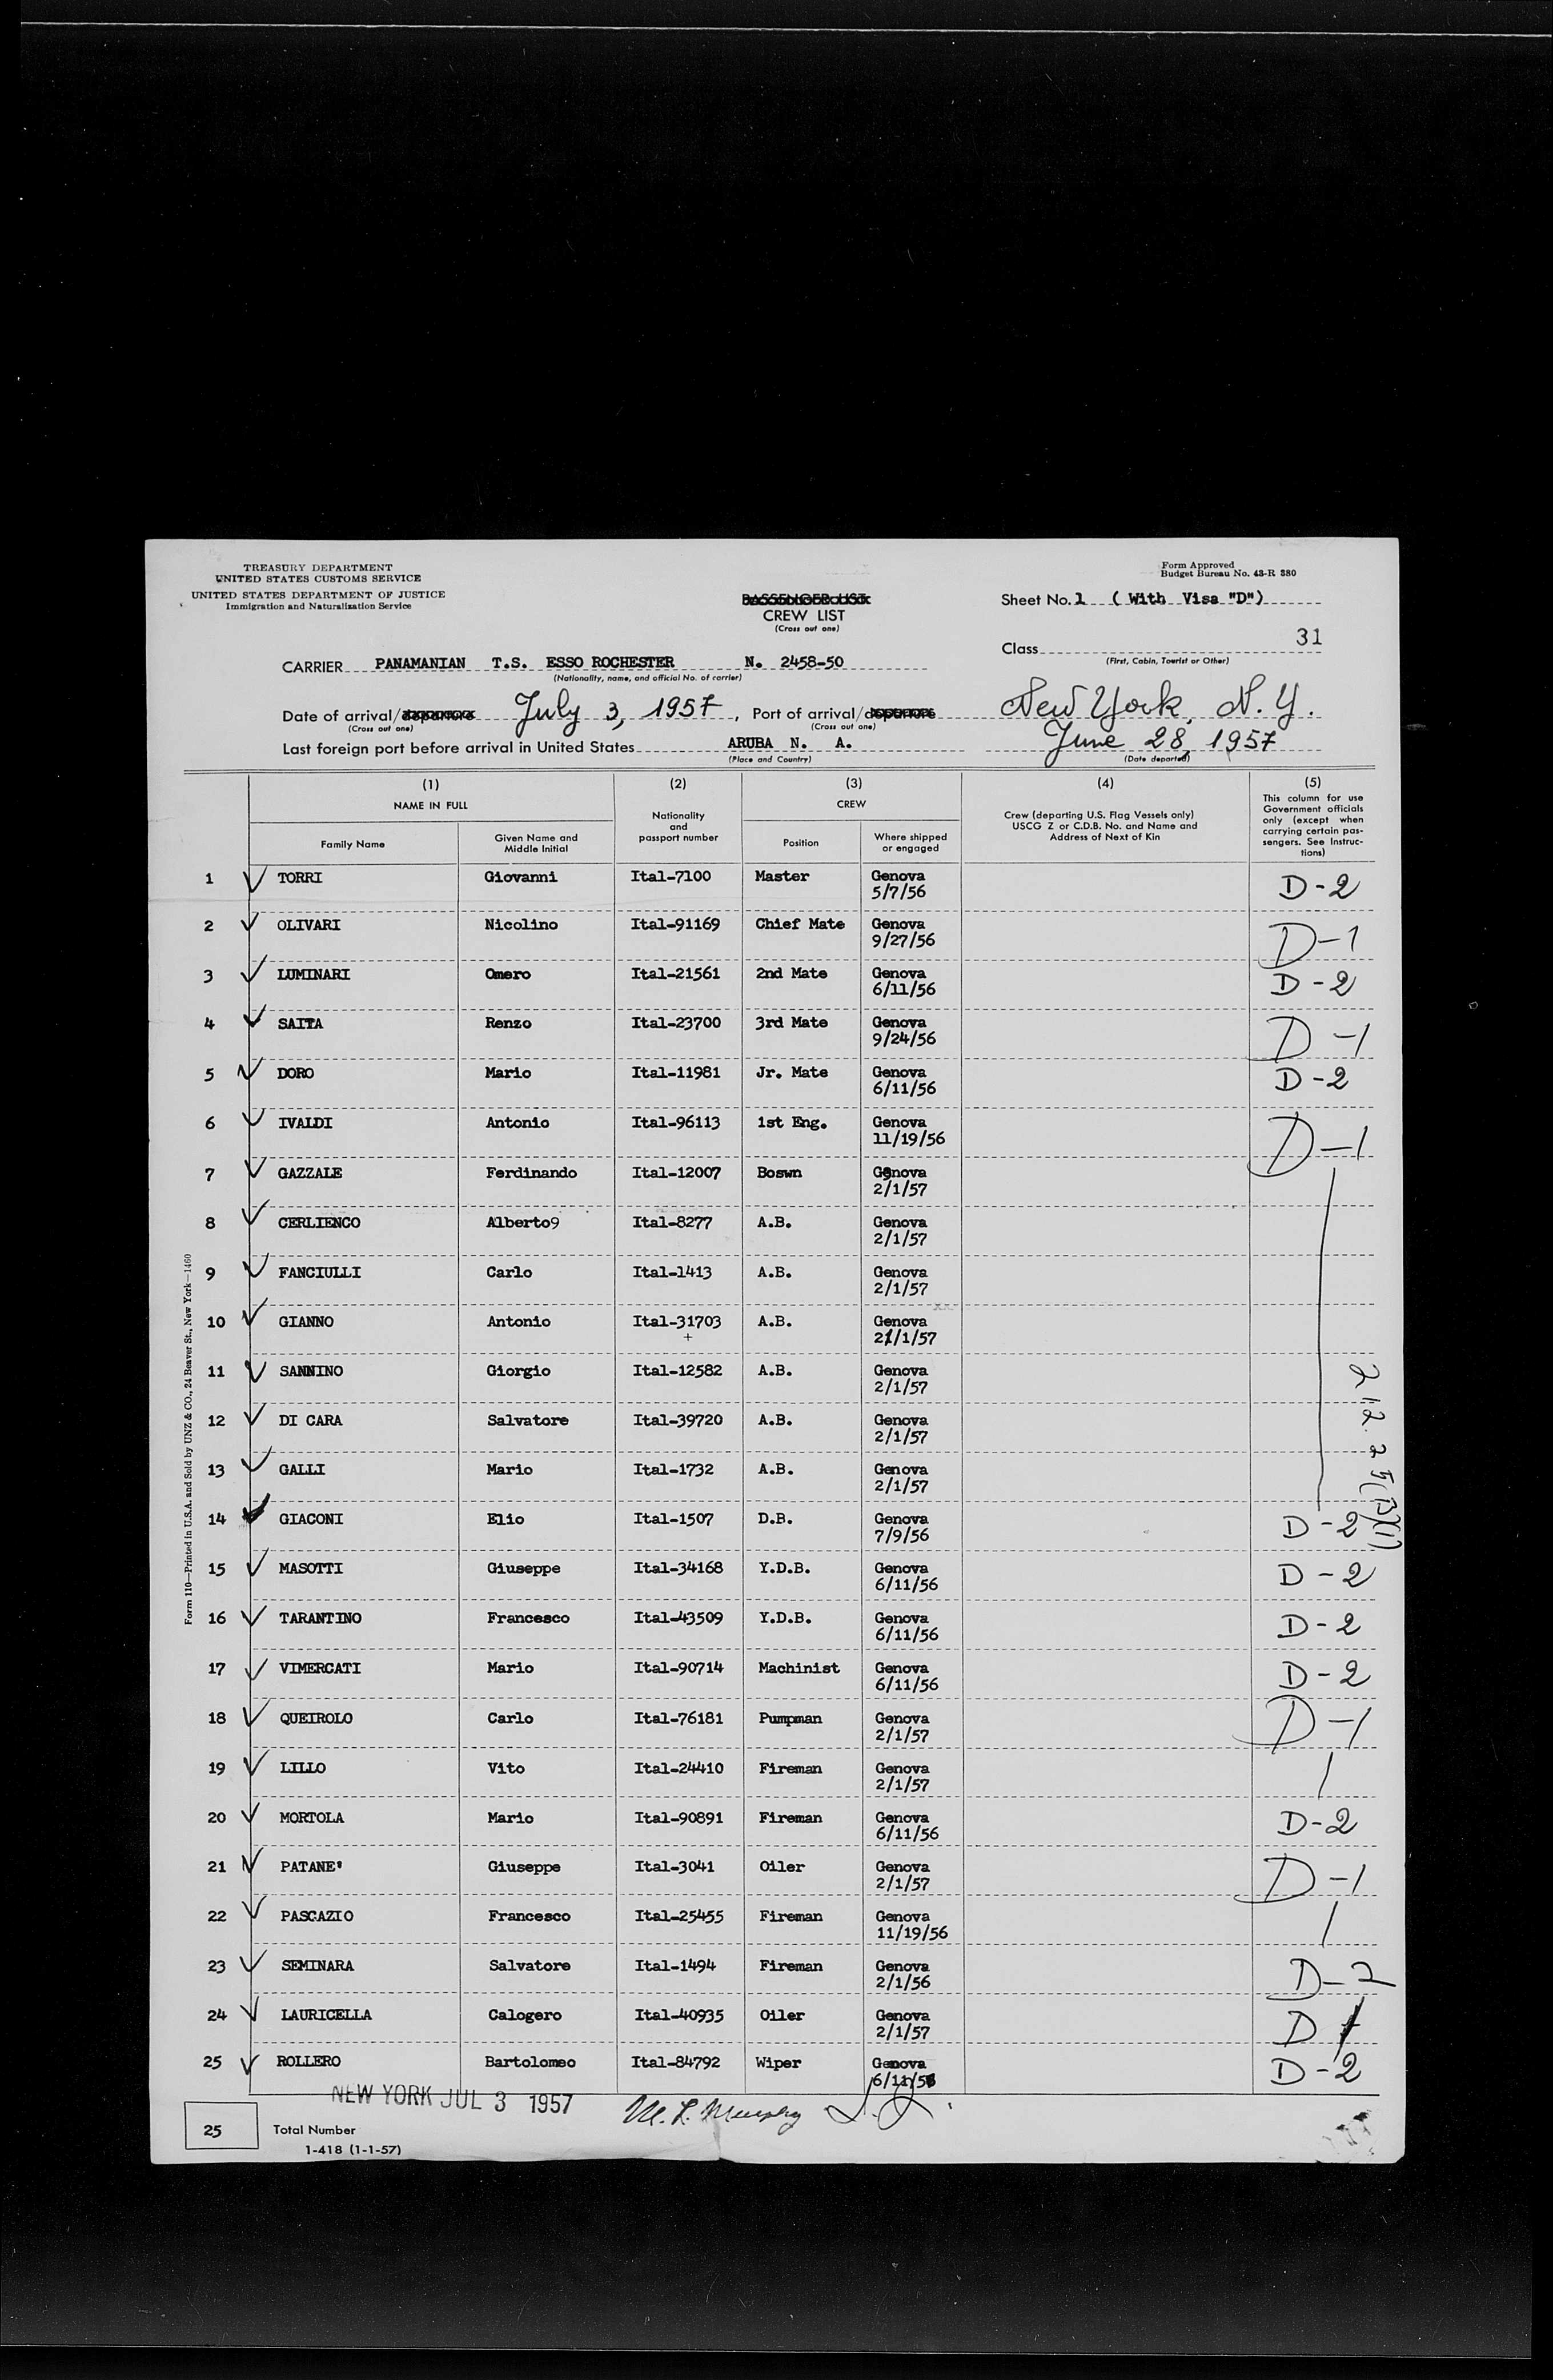 TREASURY DEPARTMENT
UNITED STATES CUSTOMS SERVICE
UNITED STATES DEPARTMENT OF JUSTICE
Immigration and Naturalization Service
PASSENGER LIST
CREW LIST
(Cross out one)
Form Approved
Budget Bureau No. 43-R 380
Sheet No. 1 ( With Visa "D")
31
Class
(First, Cabin, Tourist or Other)
CARRIER PANAMANIAN T.S. ESSO ROCHESTER N. 2458-50
(Nationality, name, and official No. of carrier)
Date of arrival/departure July 3, 1957, Port of arrival/departure New York, N.Y.
(Cross out one) (Cross out one)
Last foreign port before arrival in United States ARUBA N. A. June 28, 1957
(Place and Country) (Date departed)
(1) (2) (3) (4) (5)
NAME IN FULL
Family Name
Given Name and Middle Initial
Nationality and passport number
CREW
Position
Where shipped or engaged
Crew (departing U.S. Flag Vessels only)
USCG Z or C.D.B. No. and Name and
Address of Next of Kin
This column for use
Government officials
only (except when
carrying certain pas-
sengers. See Instruc-
tions)
1 TORRI Giovanni Ital-7100 Master Genova 5/7/56 D-2
2 OLIVARI Nicolino Ital-91169 Chief Mate Genova 9/27/56 D-1
3 LUMINARI Omero Ital-21561 2nd Mate Genova 6/11/56 D-2
4 SAITA Renzo Ital-23700 3rd Mate Genova 9/24/56 D-1
5 DORO Mario Ital-11981 Jr. Mate Genova 6/11/56 D-2
6 IVALDI Antonio Ital-96113 1st Eng. Genova 11/19/56 D-1
7 GAZZALE Ferdinando Ital-12007 Boswn Genova 2/1/57
8 CERLIENCO Alberto9 Ital-8277 A.B. Genova 2/1/57
9 FANCIULLI Carlo Ital-1413 A.B. Genova 2/1/57
10 GIANNO Antonio Ital-31703 A.B. Genova 21/1/57
+
11 SANNINO Giorgio Ital-12582 A.B. Genova 2/1/57
12 DI CARA Salvatore Ital-39720 A.B. Genova 2/1/57
13 GALLI Mario Ital-1732 A.B. Genova 2/1/57
14 GIACONI Elio Ital-1507 D.B. Genova 7/9/56 D-2
15 MASOTTI Giuseppe Ital-34168 Y.D.B. Genova 6/11/56 D-2
16 TARANTINO Francesco Ital-43509 Y.D.B. Genova 6/11/56 D-2
17 VIMERCATI Mario Ital-90714 Machinist Genova 6/11/56 D-2
18 QUEIROLO Carlo Ital-76181 Pumpman Genova 2/1/57 D-1
19 LILLO Vito Ital-24410 Fireman Genova 2/1/57
20 MORTOLA Mario Ital-90891 Fireman Genova 6/11/56 D-2
21 PATANE' Giuseppe Ital-3041 Oiler Genova 2/1/57 D-1
22 PASCAZIO Francesco Ital-25455 Fireman Genova 11/19/56
23 SEMINARA Salvatore Ital-1494 Fireman Genova 2/1/56 D-2
24 LAURICELLA Calogero Ital-40935 Oiler Genova 2/1/57 D 1
25 ROLLERO Bartolomeo Ital-84792 Wiper Genova 6/11/56 D-2
NEW YORK JUL 3 1957
M. L. Murphy
25 Total Number
1-418 (1-1-57)
Form 110—Printed in U.S.A. and Sold by UNZ & CO., 24 Beaver St., New York—1460